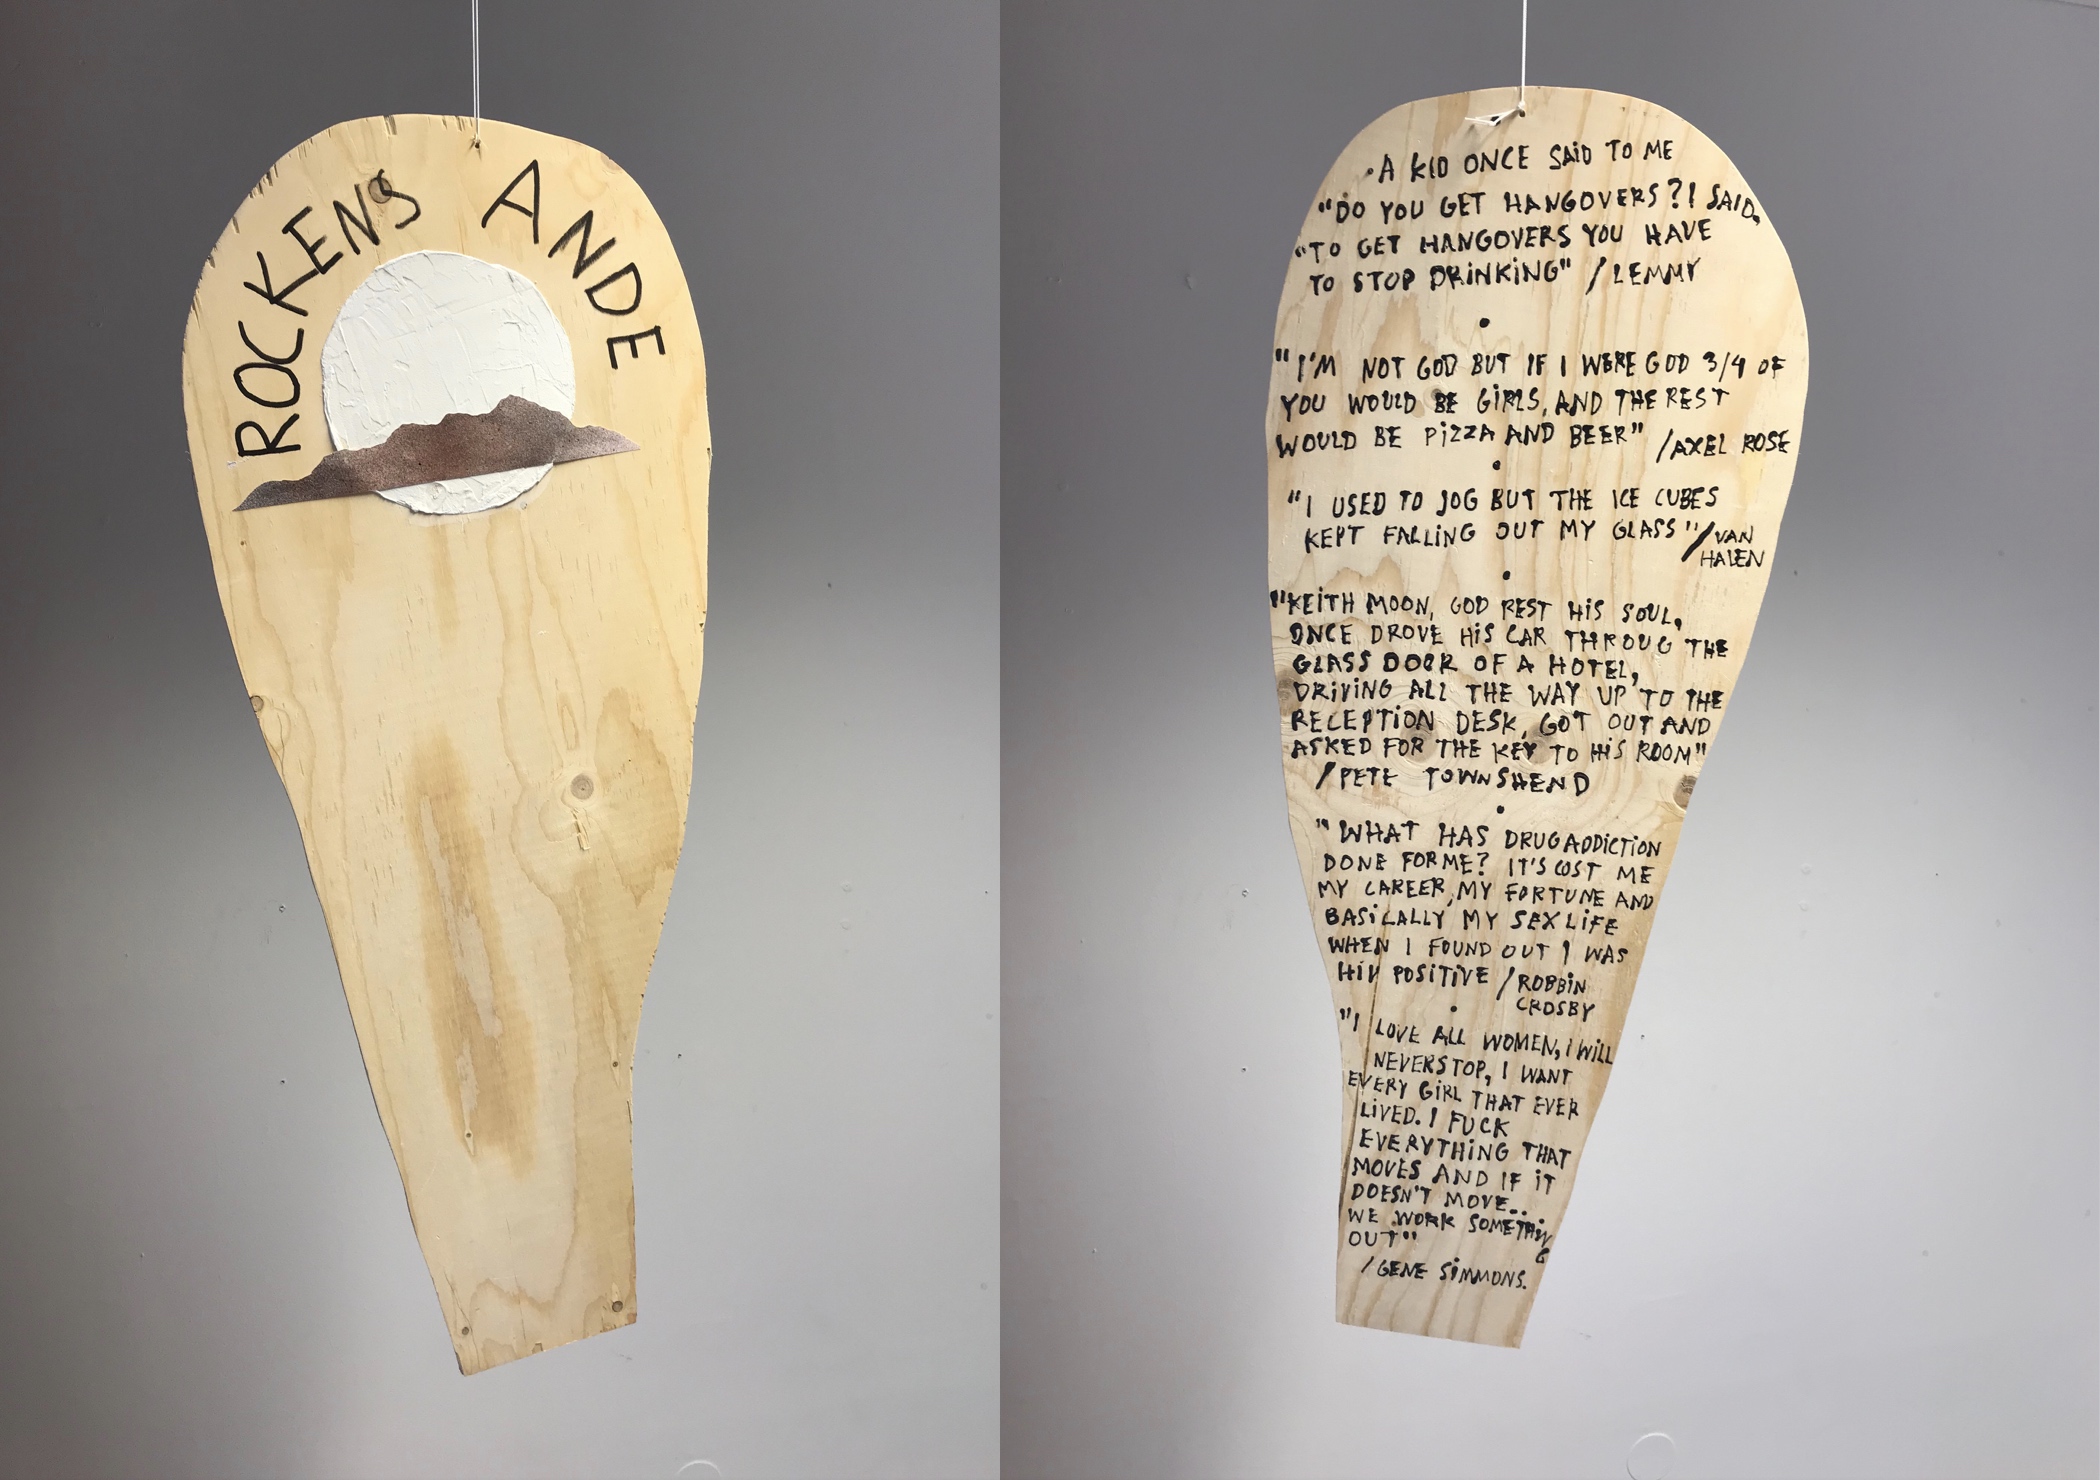 ROCKENS ANDE
•A KID ONCE SAID TO ME
"DO YOU GET HANGOVERS? I SAID.
"TO GET HANGOVERS YOU HAVE
TO STOP DRINKING" /LEMMY
•
"I'M NOT GOD BUT IF I WERE GOD 3/4 OF
YOU WOULD BE GIRLS, AND THE REST
WOULD BE PIZZA AND BEER" /AXEL ROSE
•
"I USED TO JOG BUT THE ICE CUBES
KEPT FALLING OUT MY GLASS" /VAN
HALEN
•
"KEITH MOON, GOD REST HIS SOUL,
ONCE DROVE HIS CAR THROUG THE
GLASS DOOR OF A HOTEL,
DRIVING ALL THE WAY UP TO THE
RECEPTION DESK, GOT OUT AND
ASKED FOR THE KEY TO HIS ROOM"
/PETE TOWNSHEND
•
"WHAT HAS DRUG ADDICTION
DONE FOR ME? IT'S COST ME
MY CAREER, MY FORTUNE AND
BASICALLY MY SEX LIFE
WHEN I FOUND OUT I WAS
HIV POSITIVE /ROBBIN
CROSBY
•
"I LOVE ALL WOMEN, I WILL
NEVER STOP, I WANT
EVERY GIRL THAT EVER
LIVED. I FUCK
EVERYTHING THAT
MOVES AND IF IT
DOESN'T MOVE...
WE WORK SOMETHING
OUT"
/GENE SIMMONS.